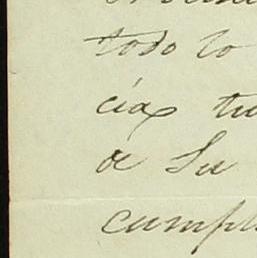 todo lo
cias tu
de Su
cumpl